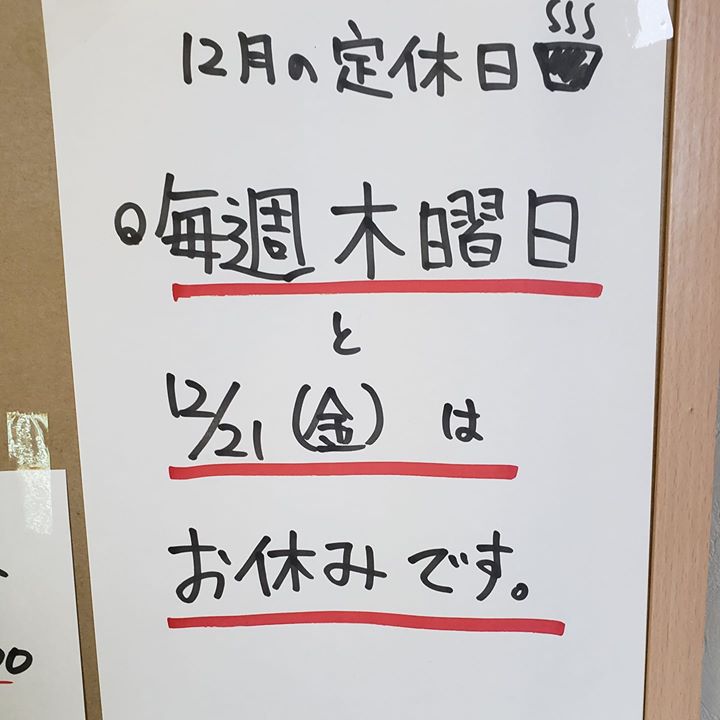 12月の定休日
○毎週木曜日
と
12/21(金) は
お休みです。
00